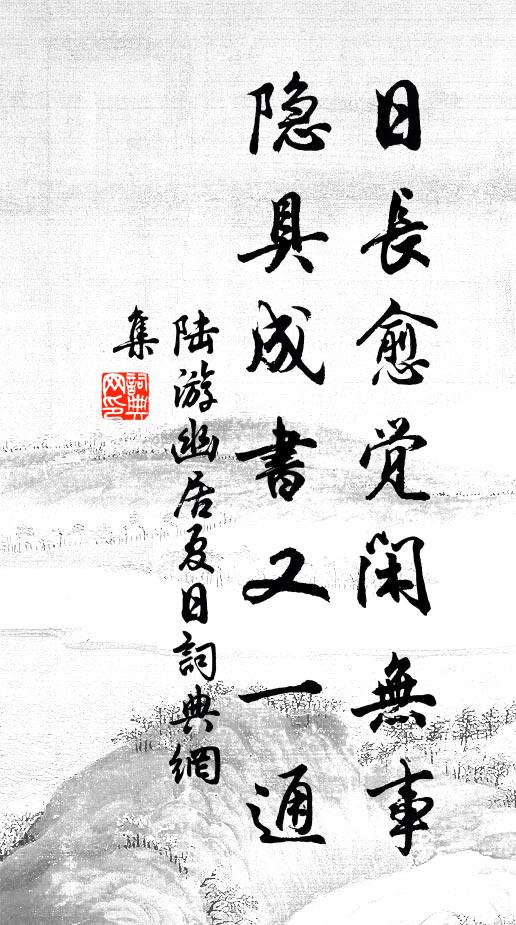 日長愈觉閑無事
隐具成書又一通
陆游幽居夏日詞典網
集
詞典
网印